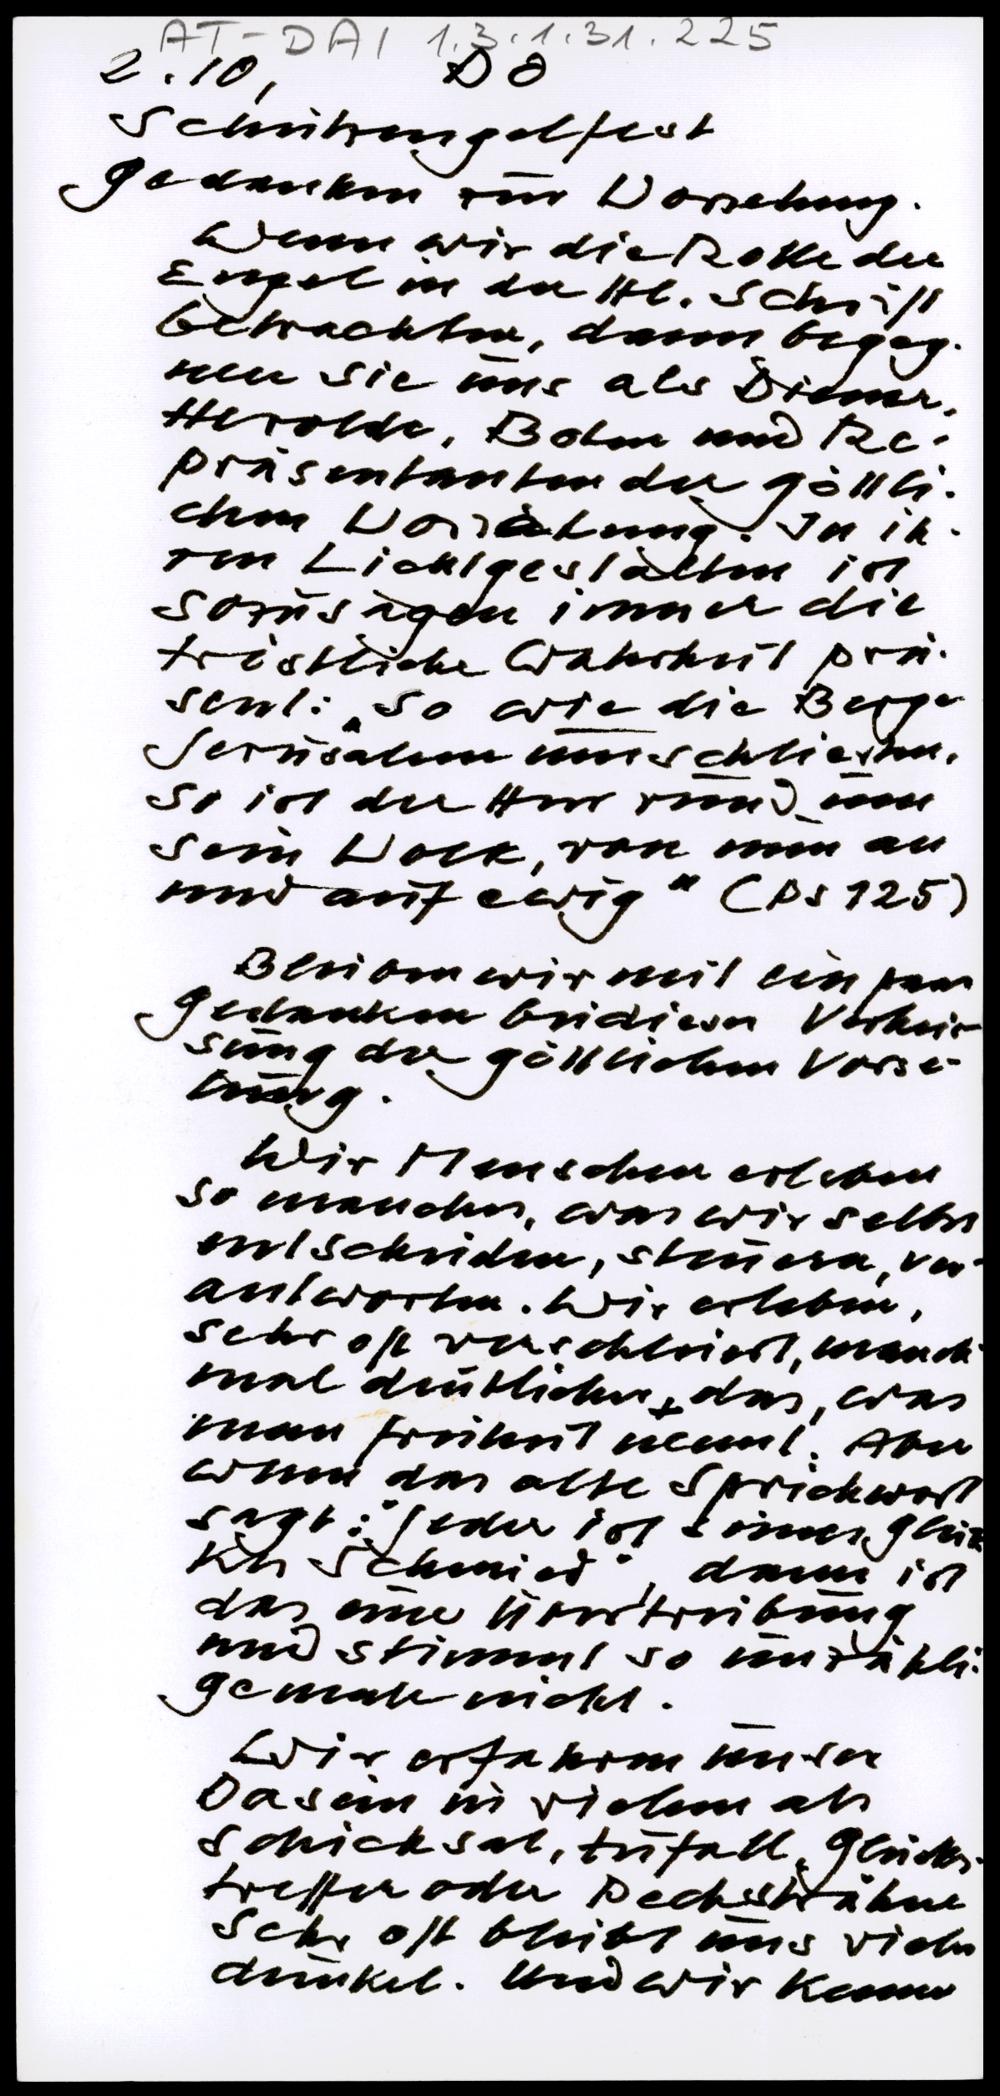 AT-DAI 1.3.1.31.225
2.10, DO
Schutzengelfest
Gedanken zur Vorsehung.
Wenn wir die Rolle der
Engel in der Hl. Schrift
betrachten, dann begeg-
nen sie uns als Diener,
Herolde, Boten und Re-
präsentanten der göttli-
chen Vorsehung. In ih-
ren Lichtgestalten ist
sozusagen immer die
tröstliche Wahrheit prä-
sent: "So wie die Berge
Jerusalem umschliessen,
so ist der Herr rund um
sein Volk, von nun an
und auf ewig" (Ps 125)
Bleiben wir mit ein paar
Gedanken bei dieser Verheis-
sung der göttlichen Vorse-
hung.
Wir Menschen erleben
so manches, was wir selbst
entscheiden, steuern, ver-
antworten. Wir erleben,
sehr oft verschleiert, manch-
mal deutlicher, das, was
man Freiheit nennt. Aber
wenn das alte Sprichwort
sagt: "Jeder ist seines Glük-
kes Schmied", dann ist
das eine Übertreibung
und stimmt so unzähli-
gemale nicht.
Wir erfahren unser
Dasein in vielem als
Schicksal, Zufall, Glücks-
treffer oder Pechsträhne
Sehr oft bleibt uns vieles
dunkel. Und wir kennen